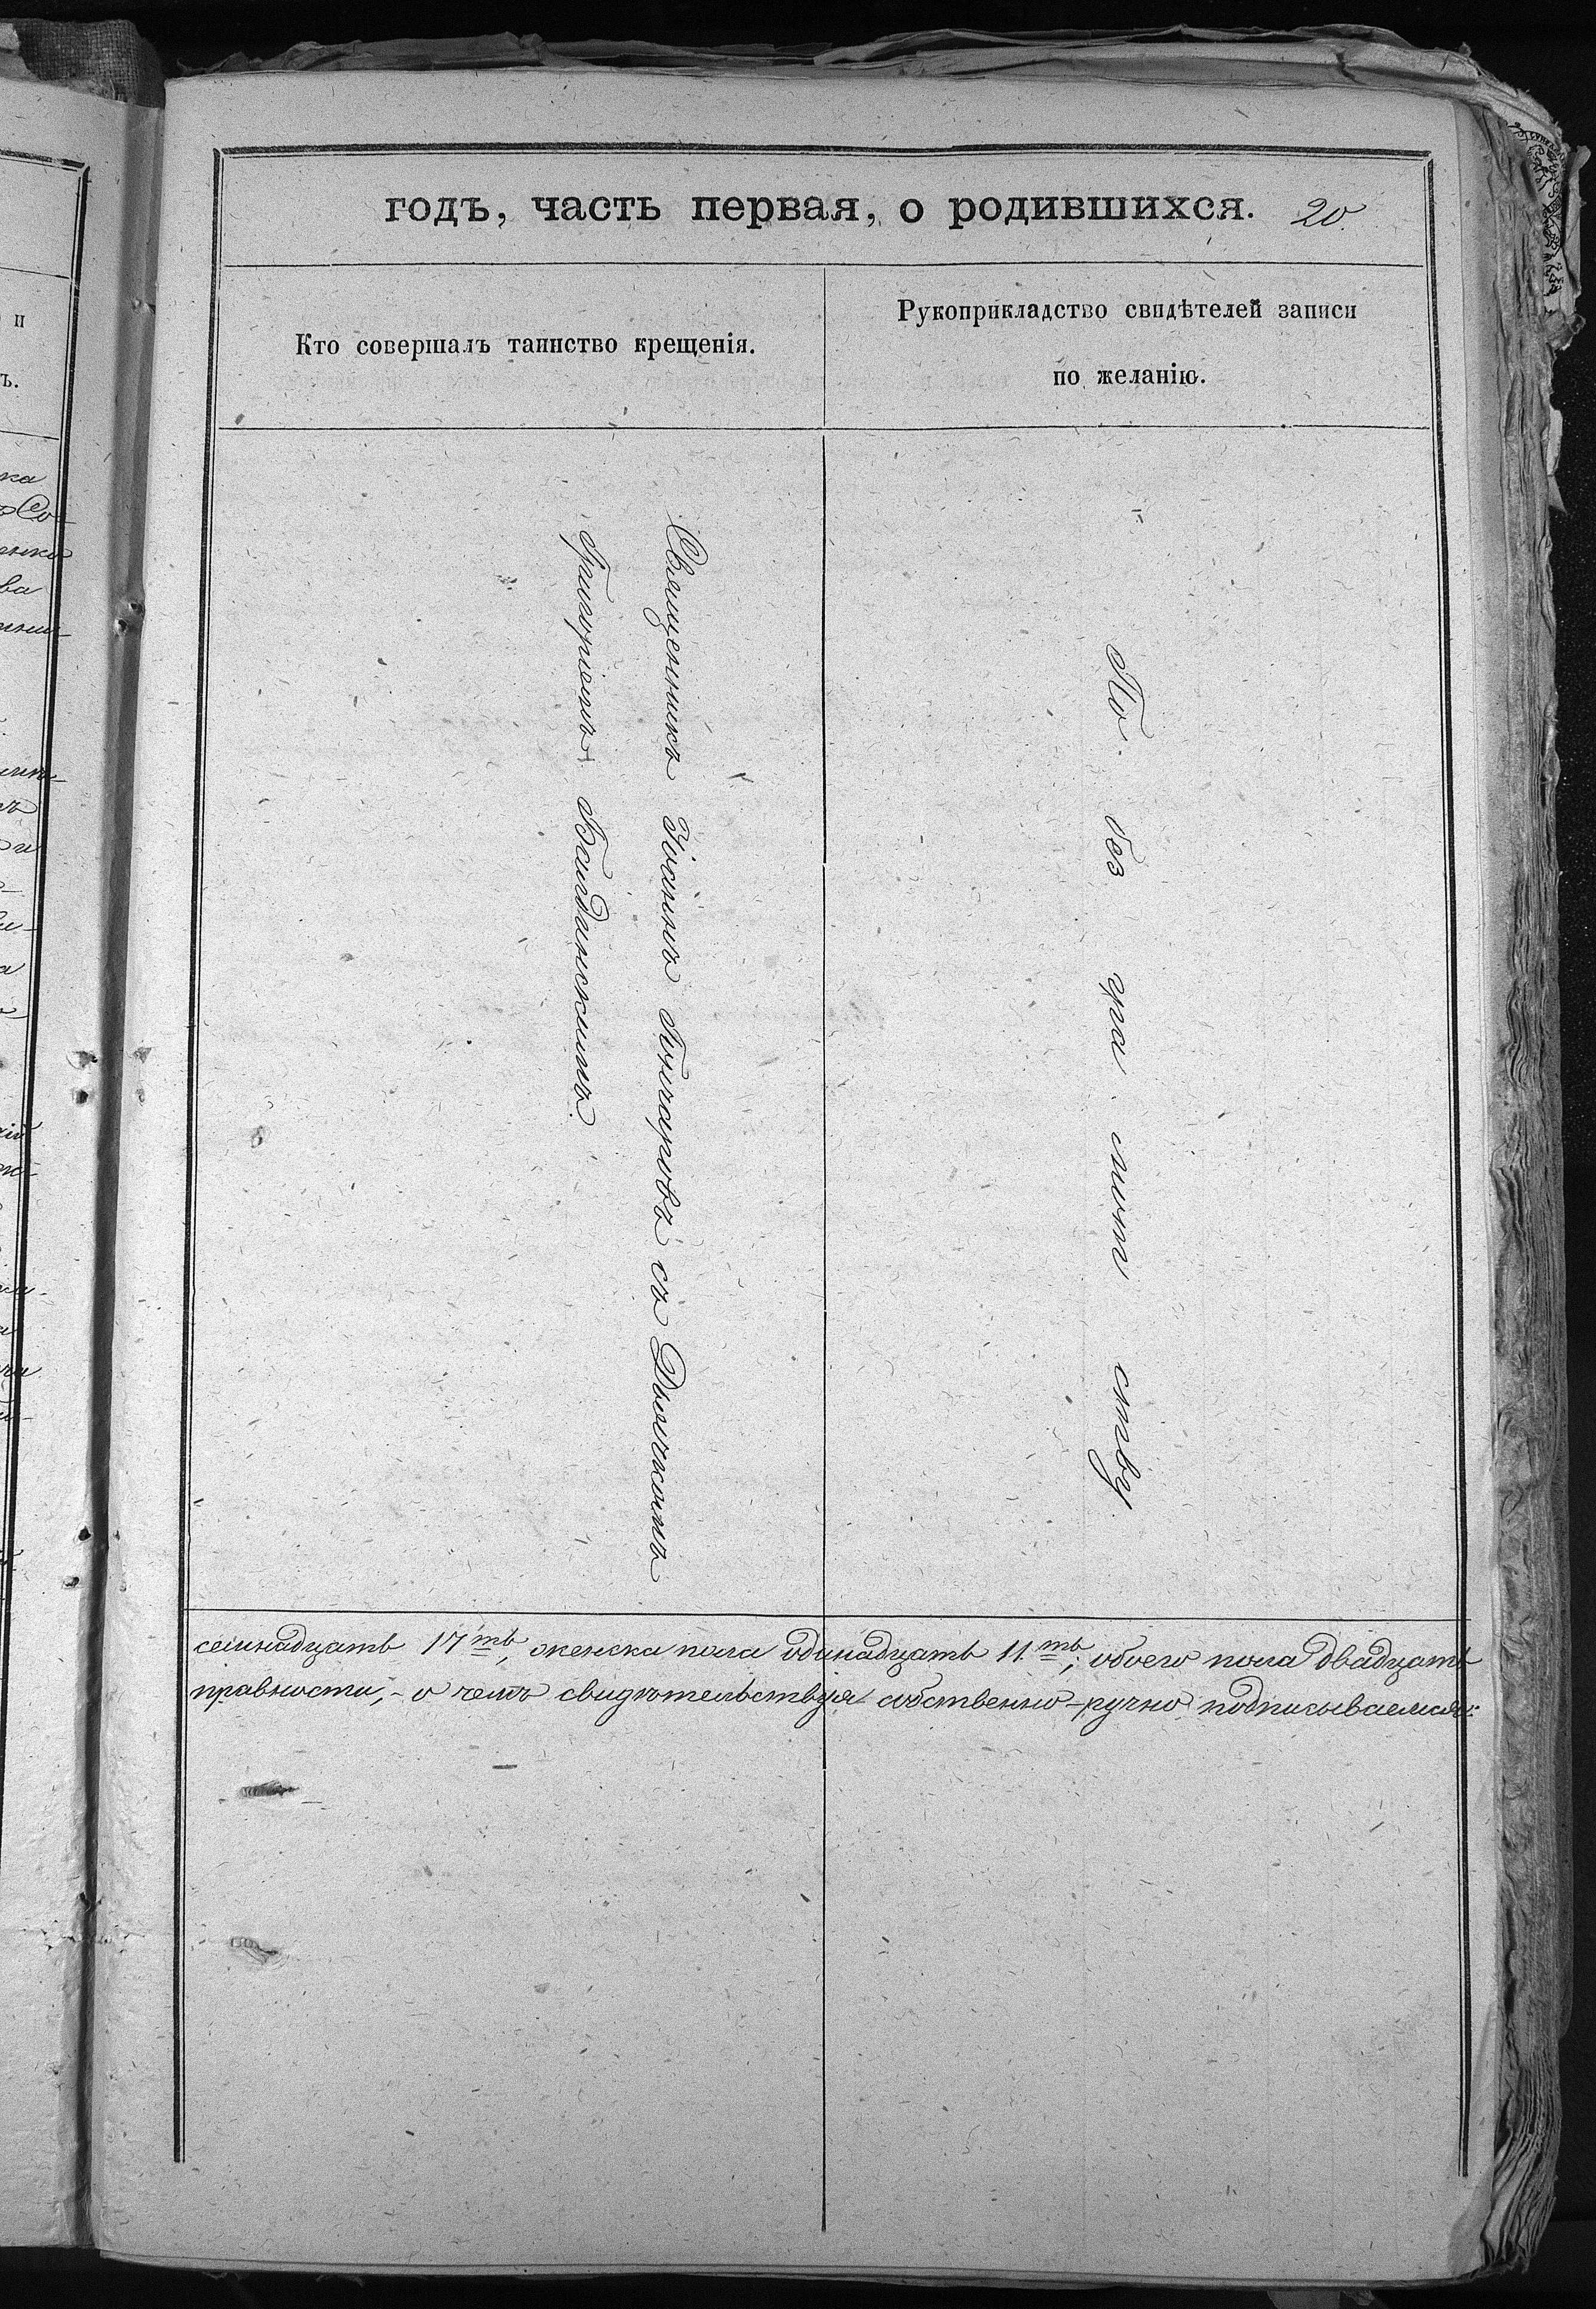 годъ, часть первая, о родившихся. 20.
Кто совершалъ таинство крещенія.
Рукоприкладство свидѣтелей записи
по желанію.
Священникъ Іоаннъ с
Григоріемъ
По без гра мот ству
семнадцать 17ть, женска пола одинадцать 11ть; обоего пола двадцать
правности, - о чемъ свидѣтельствуя собственно-ручно подписываемся: